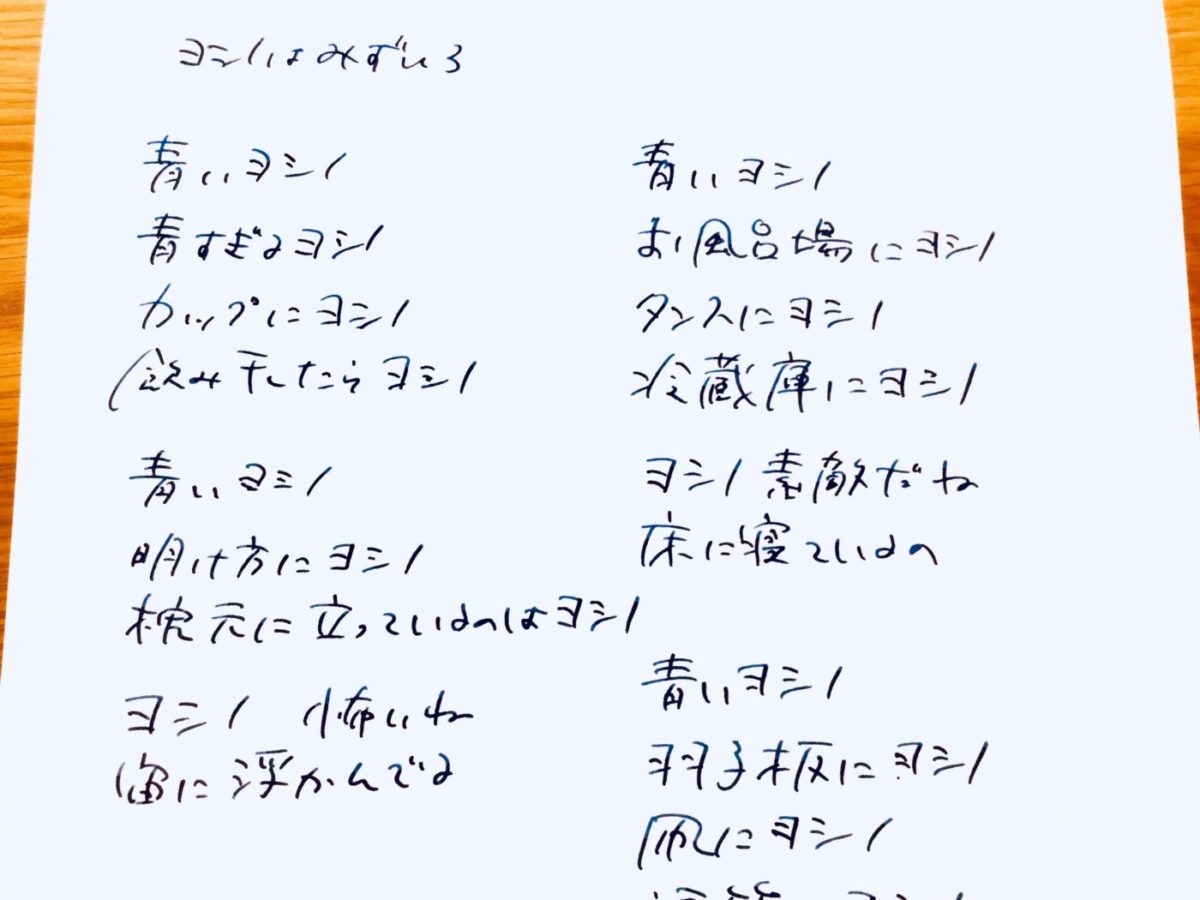 ヨシノはみずいろ
青いヨシノ
青すぎるヨシノ
カップにヨシノ
飲み干したらヨシノ
青いヨシノ
明け方にヨシノ
枕元に立っているのはヨシノ
ヨシノ 怖いね
宙に浮かんでる
青いヨシノ
お風呂場にヨシノ
タンスにヨシノ
冷蔵庫にヨシノ
ヨシノ 素敵だね
床に寝ているの
青いヨシノ
羽子板にヨシノ
凧にヨシノ